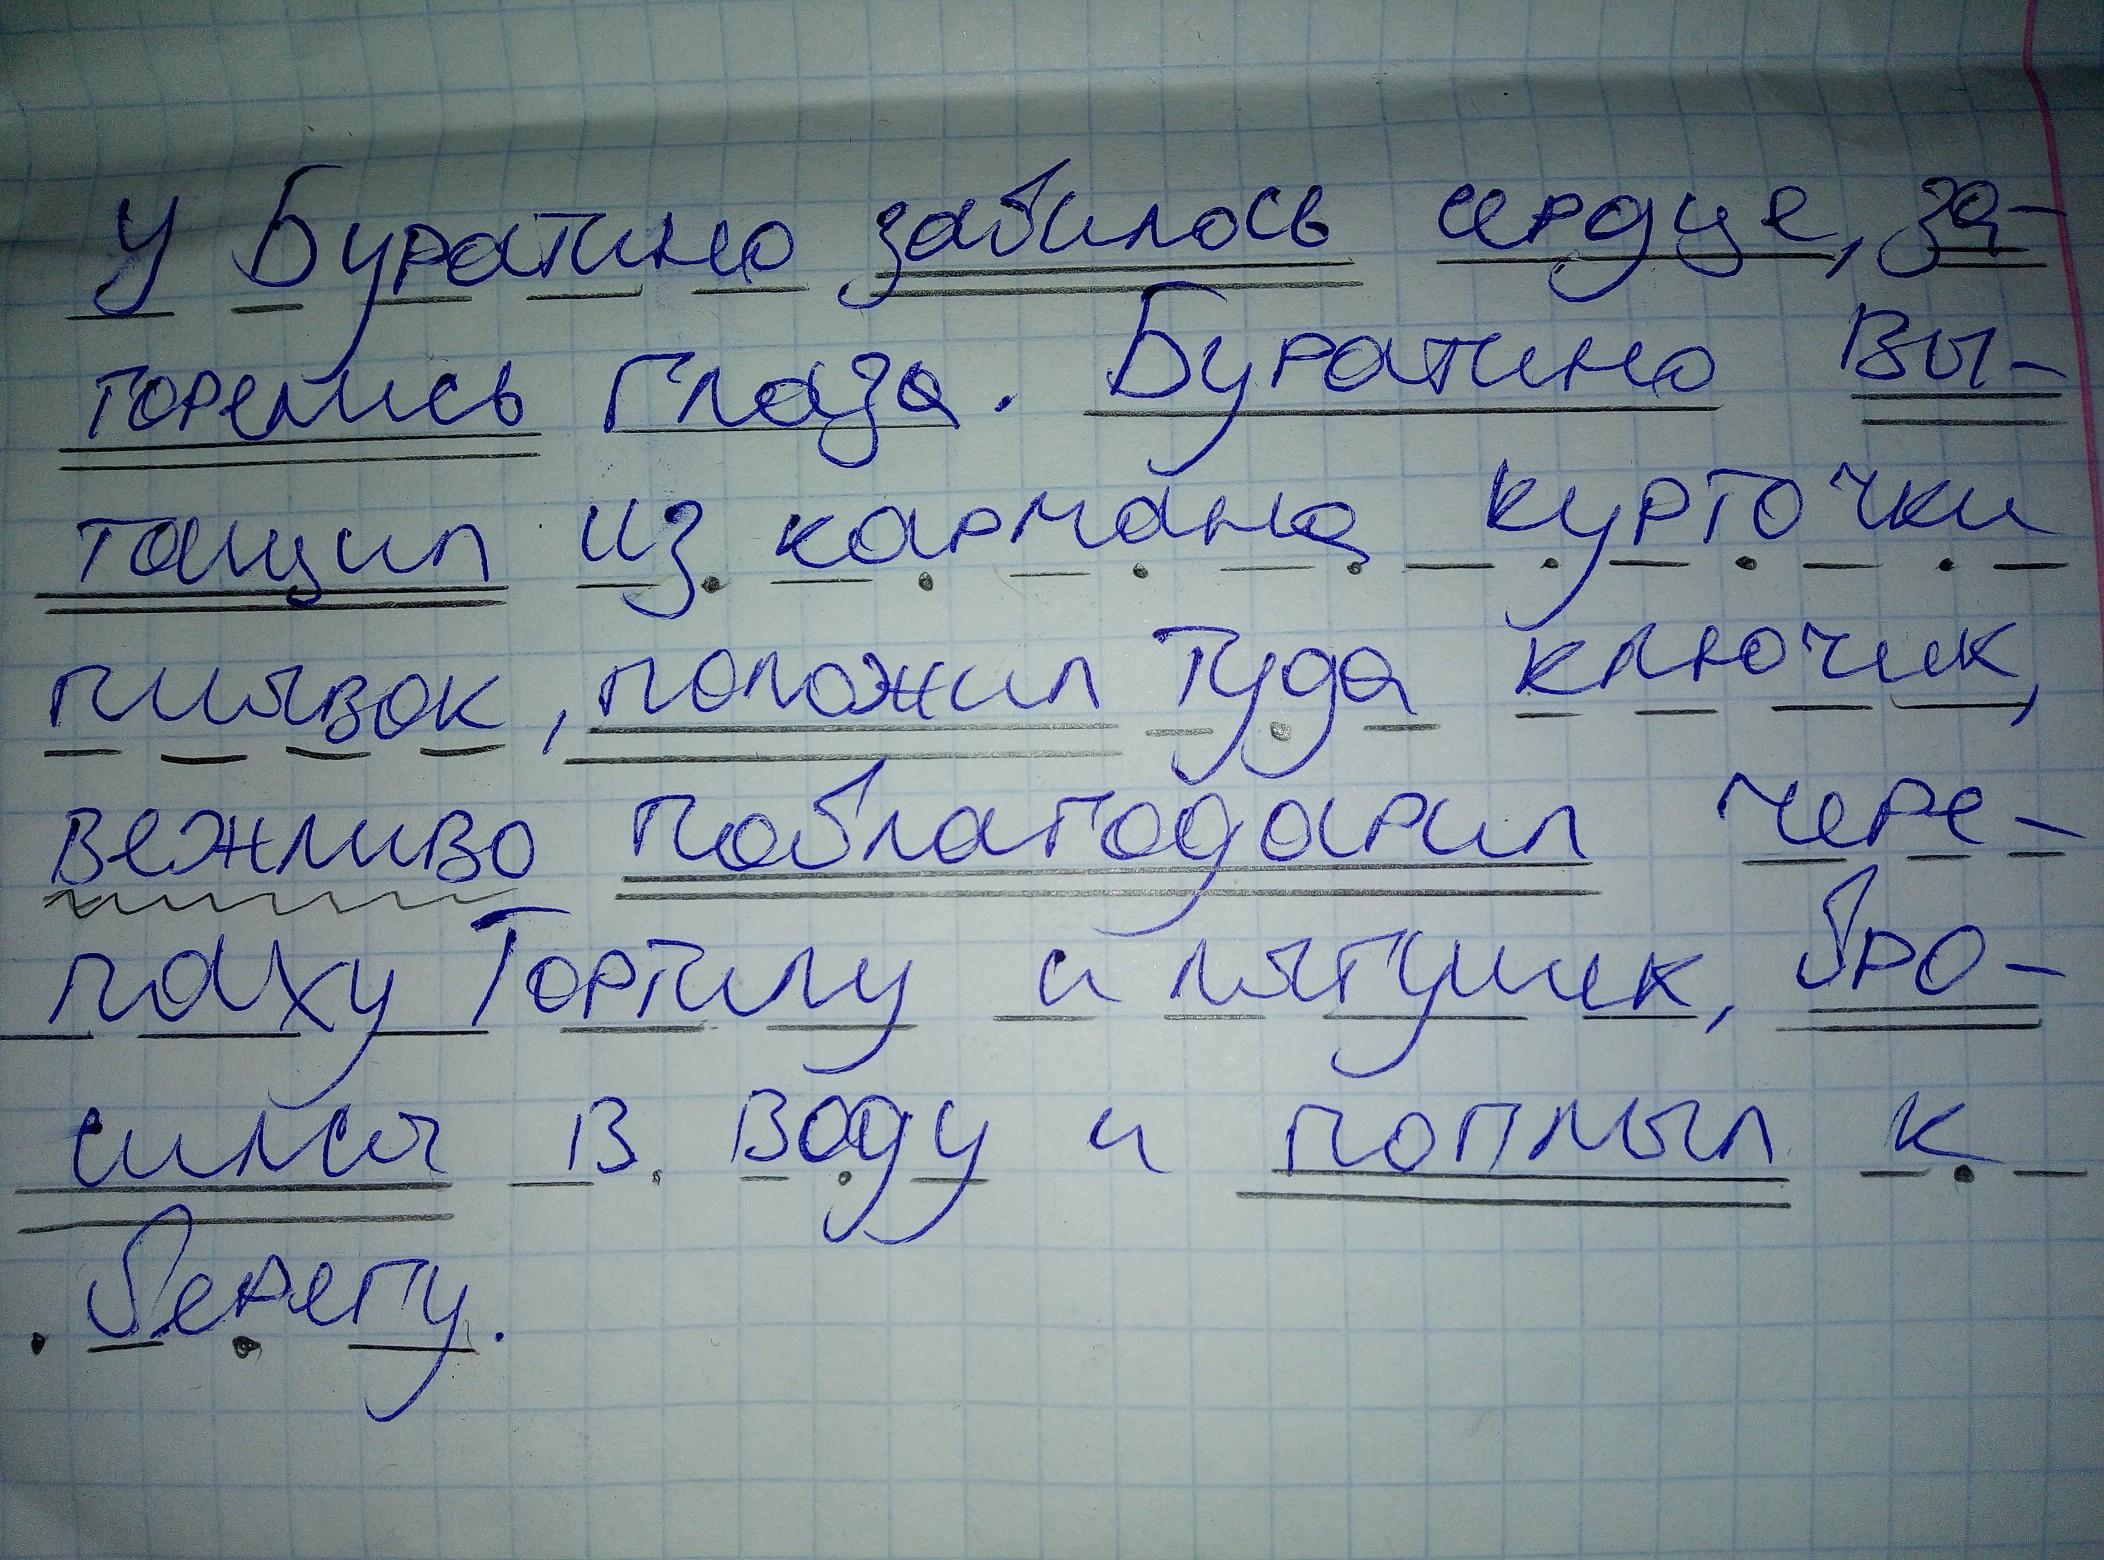 У Буратино забилось сердце, за-
горелись глаза. Буратино вы-
тащил из кармана курточки
пиявок, положил туда ключик,
вежливо поблагодарил чере-
паху Тортилу и лягушек, бро-
сился в воду и поплыл к
берегу.